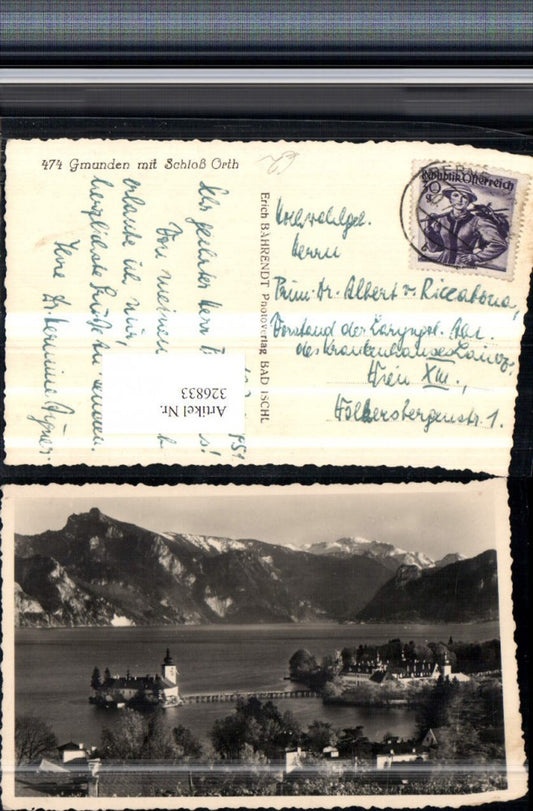 474 Gmunden mit Schloß Orth
Republik Österreich
30 g
Sehr geehrter Herr
Von meinem
erlaube ich mir,
herzlichste Grüße zu senden.
Ihre Dr. Hermine
951
Artikel Nr.
326833
Erich BÄHRENDT Photoverlag BAD ISCHL
Hochwohlgeb.
Herrn
Prim. Dr. Albert v. Riccabona,
Vorstand der Laryngol. Abt.
des Krankenhauses Lainz,
Wien XIII.,
Wolkersbergenstr. 1.